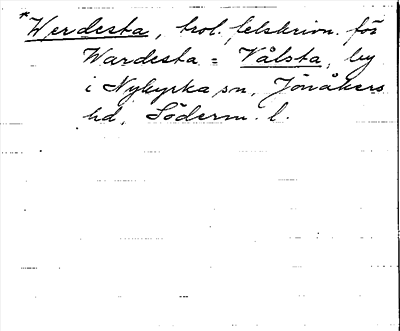 *Werdesta, trol. felskrivn. för
Wardesta = Vålsta, by
i Nykyrka sn, Jönåkers
hd, Söderm. l.